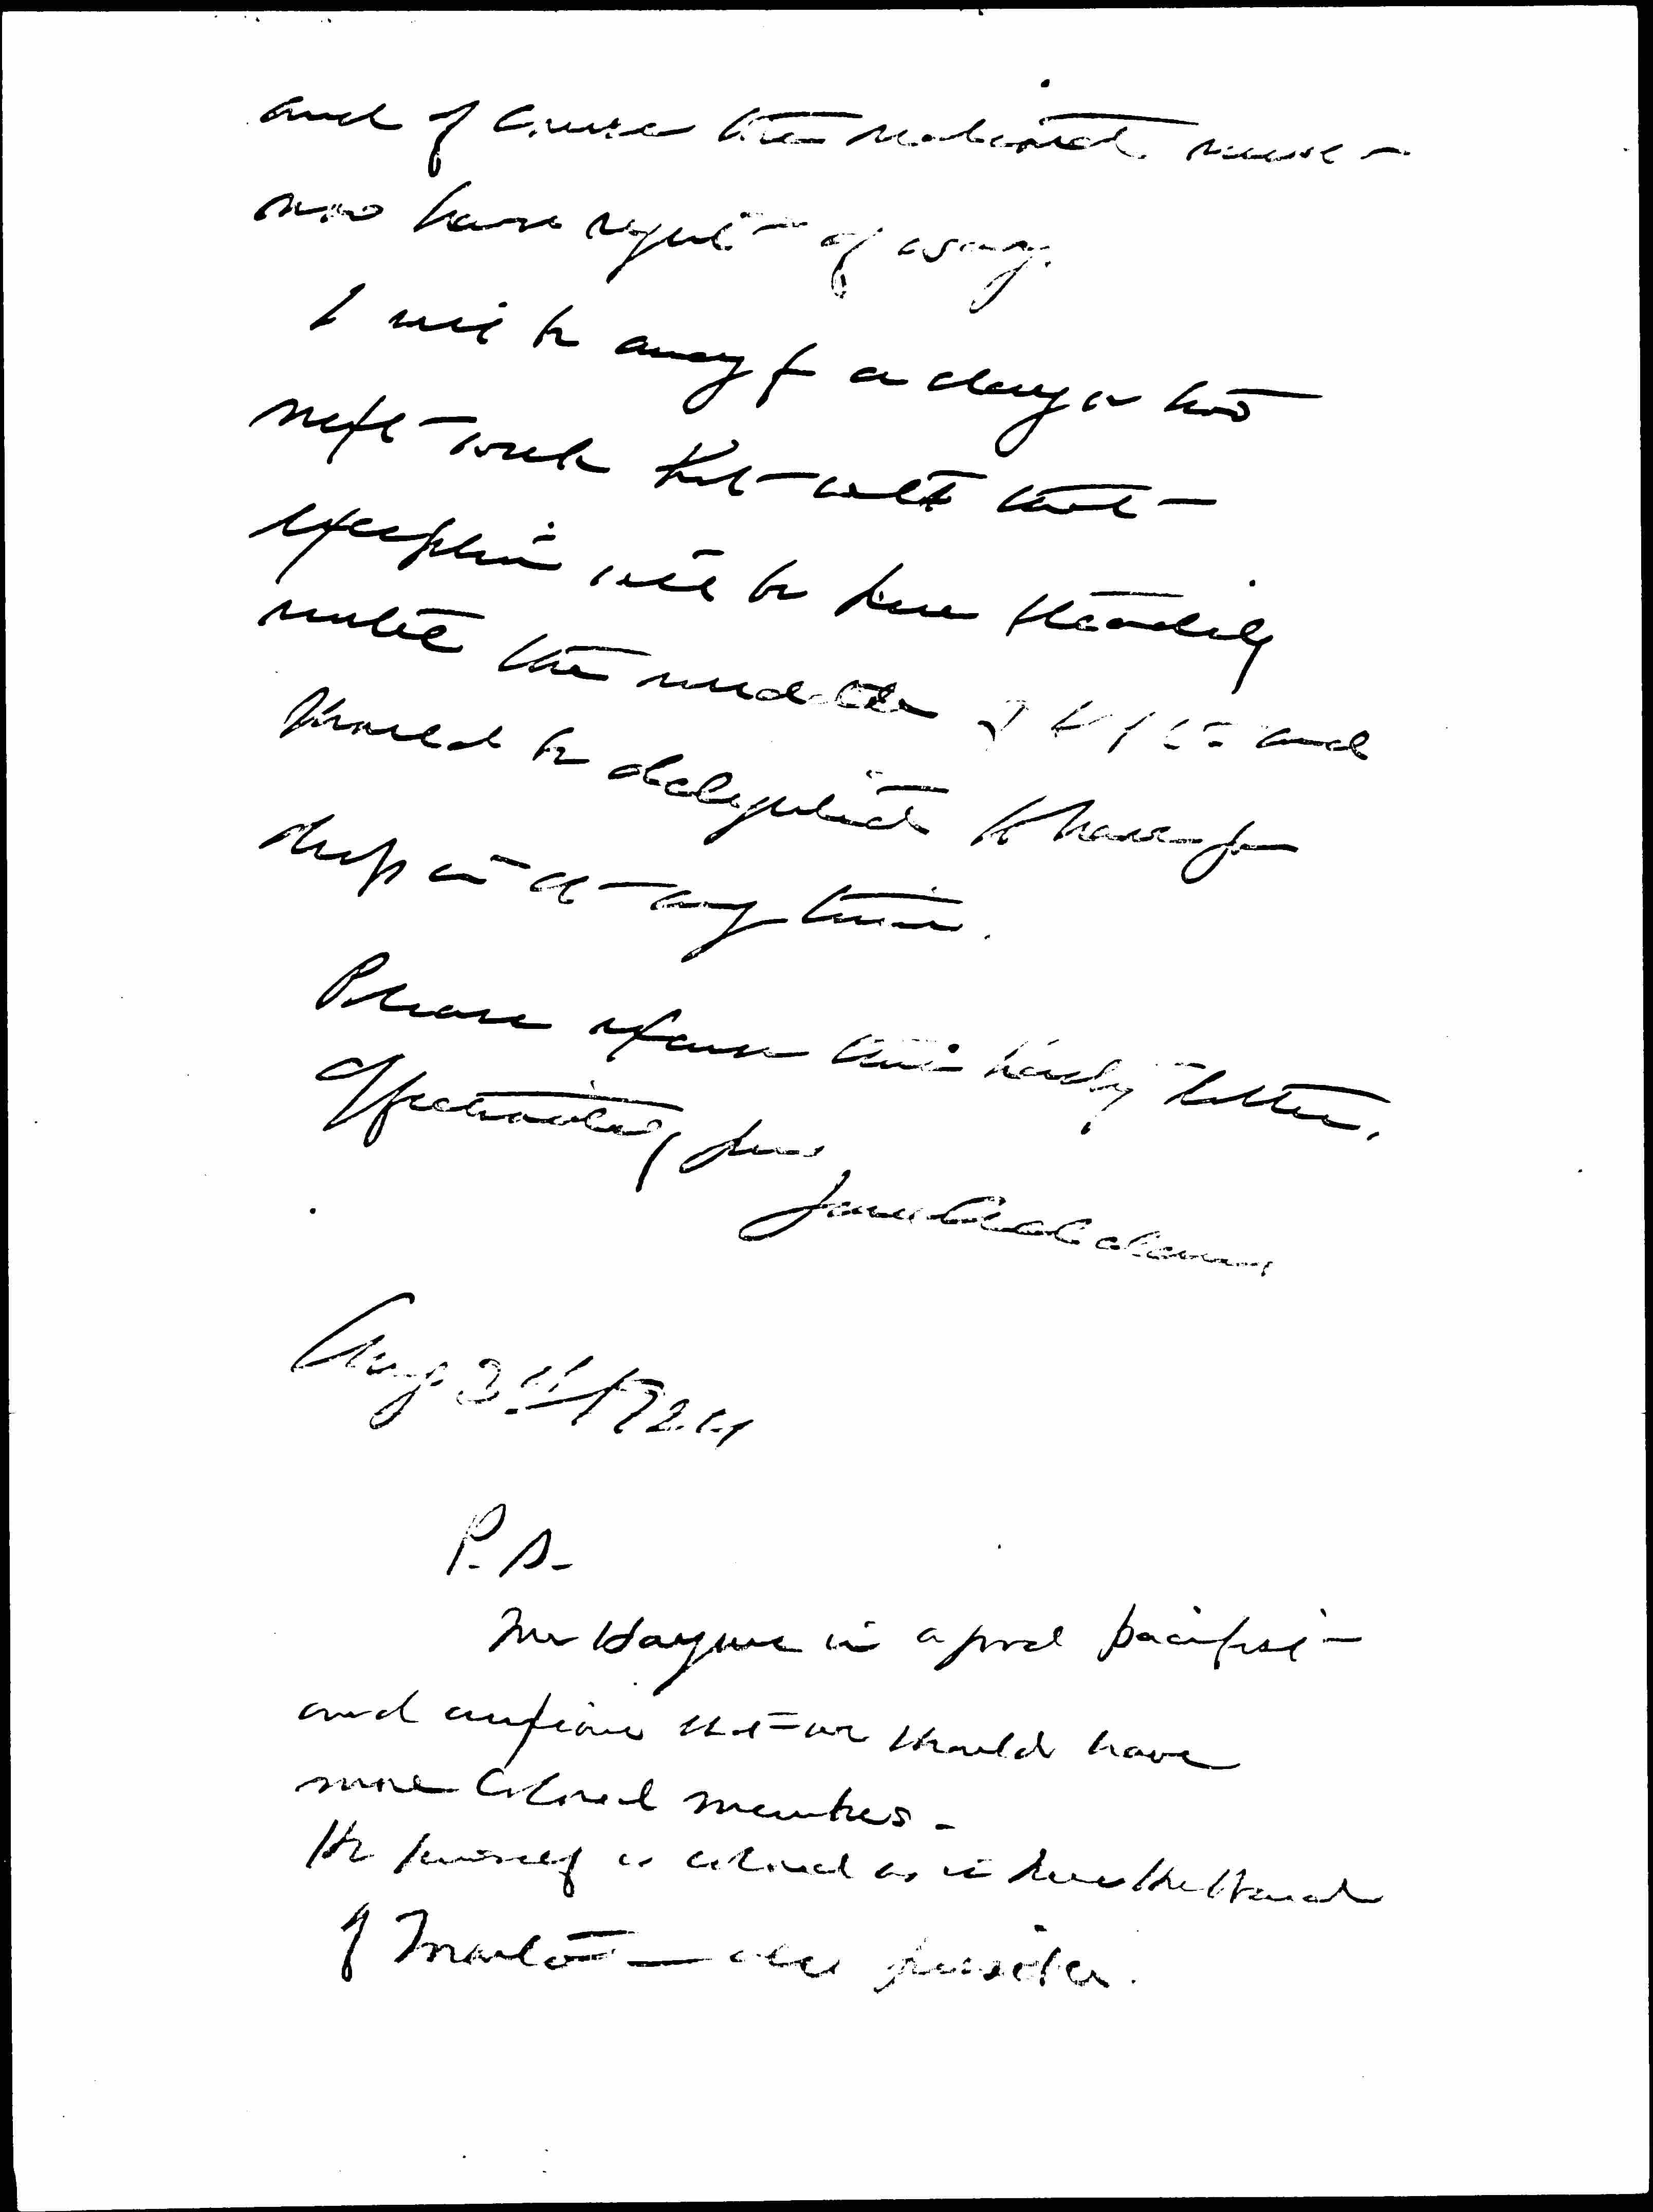 and of course the national must
now have right of way.
I will be away for a day or two
next week but with that
exception will be here steadily
until the middle of and
should be delighted to have you
drop in at any time.
Please excuse this hasty letter.
Affectionately yours
Jane Addams
Aug 2d 1924
P.S.
Mr Haynes is a good pacifist
and anxious that we should have
more colored members.
He himself is colored as is
of — also